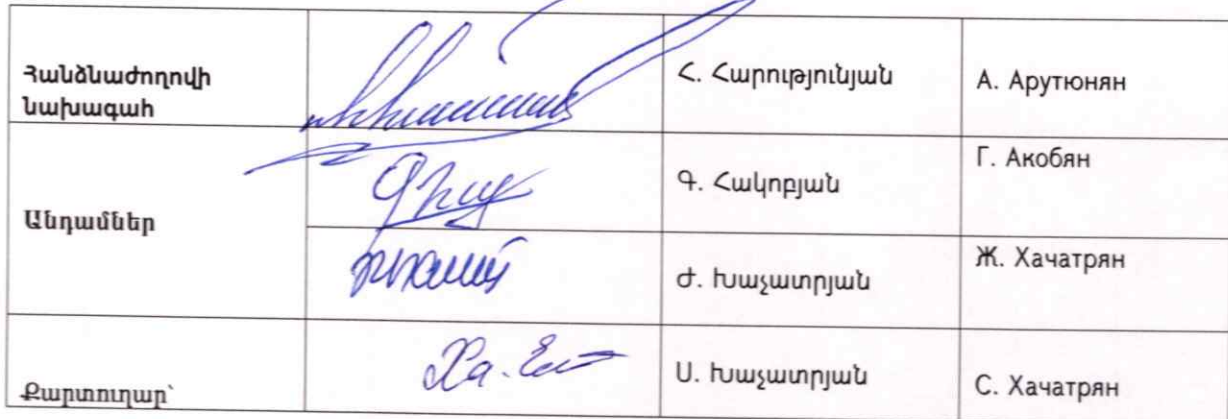 Հանձնաժողովի
նախագահ
Հ. Հարությունյան
А. Арутюнян
Անդամներ
Գ. Հակոբյան
Г. Акобян
Ժ. Խաչատրյան
Ж. Хачатрян
Քարտուղար՝
Ս. Խաչատրյան
С. Хачатрян